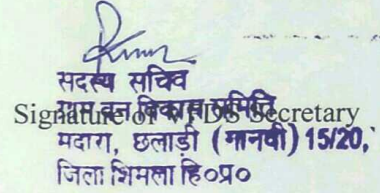 सदस्य सचिव
ग्राम वन विकास समिति
Signature of VFDS Secretary
मदारा, छलाड़ी (मानवी) 15/20,
जिला शिमला हि०प्र०